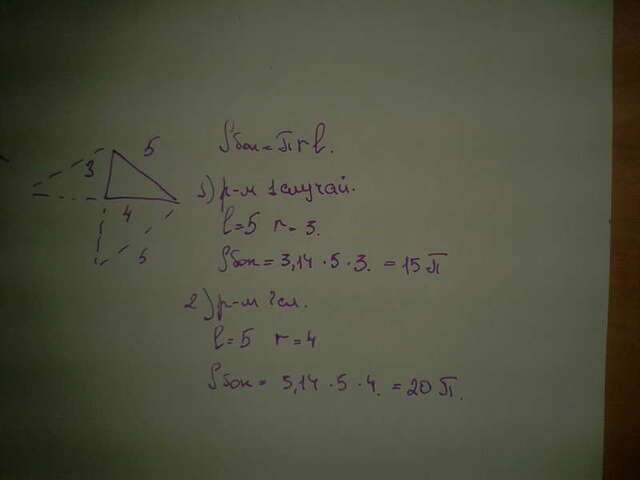 3 5
4
5
Sбок = πrl.
1) р-м 1 случай.
l=5 r=3.
Sбок = 3,14·5·3. = 15π
2) р-м 2 сл.
l=5 r=4
Sбок = 3,14·5·4. = 20π.